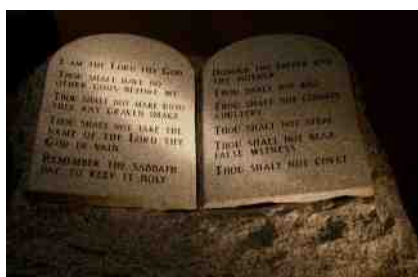 I AM THE LORD THY GOD
THOU SHALT HAVE NO
OTHER GODS BEFORE ME
THOU SHALT NOT MAKE UNTO
THEE ANY GRAVEN IMAGE
THOU SHALT NOT TAKE THE
NAME OF THE LORD THY
GOD IN VAIN
REMEMBER THE SABBATH
DAY TO KEEP IT HOLY
HONOUR THY FATHER AND
THY MOTHER
THOU SHALT NOT KILL
THOU SHALT NOT COMMIT
ADULTERY
THOU SHALT NOT STEAL
THOU SHALT NOT BEAR
FALSE WITNESS
THOU SHALT NOT COVET